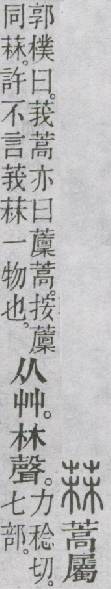 菻蒿屬
郭樸曰。莪蒿亦曰䕲蒿。按䕲
同菻。許不言莪菻一物也。
从艸。林聲。
力稔切。
七部。